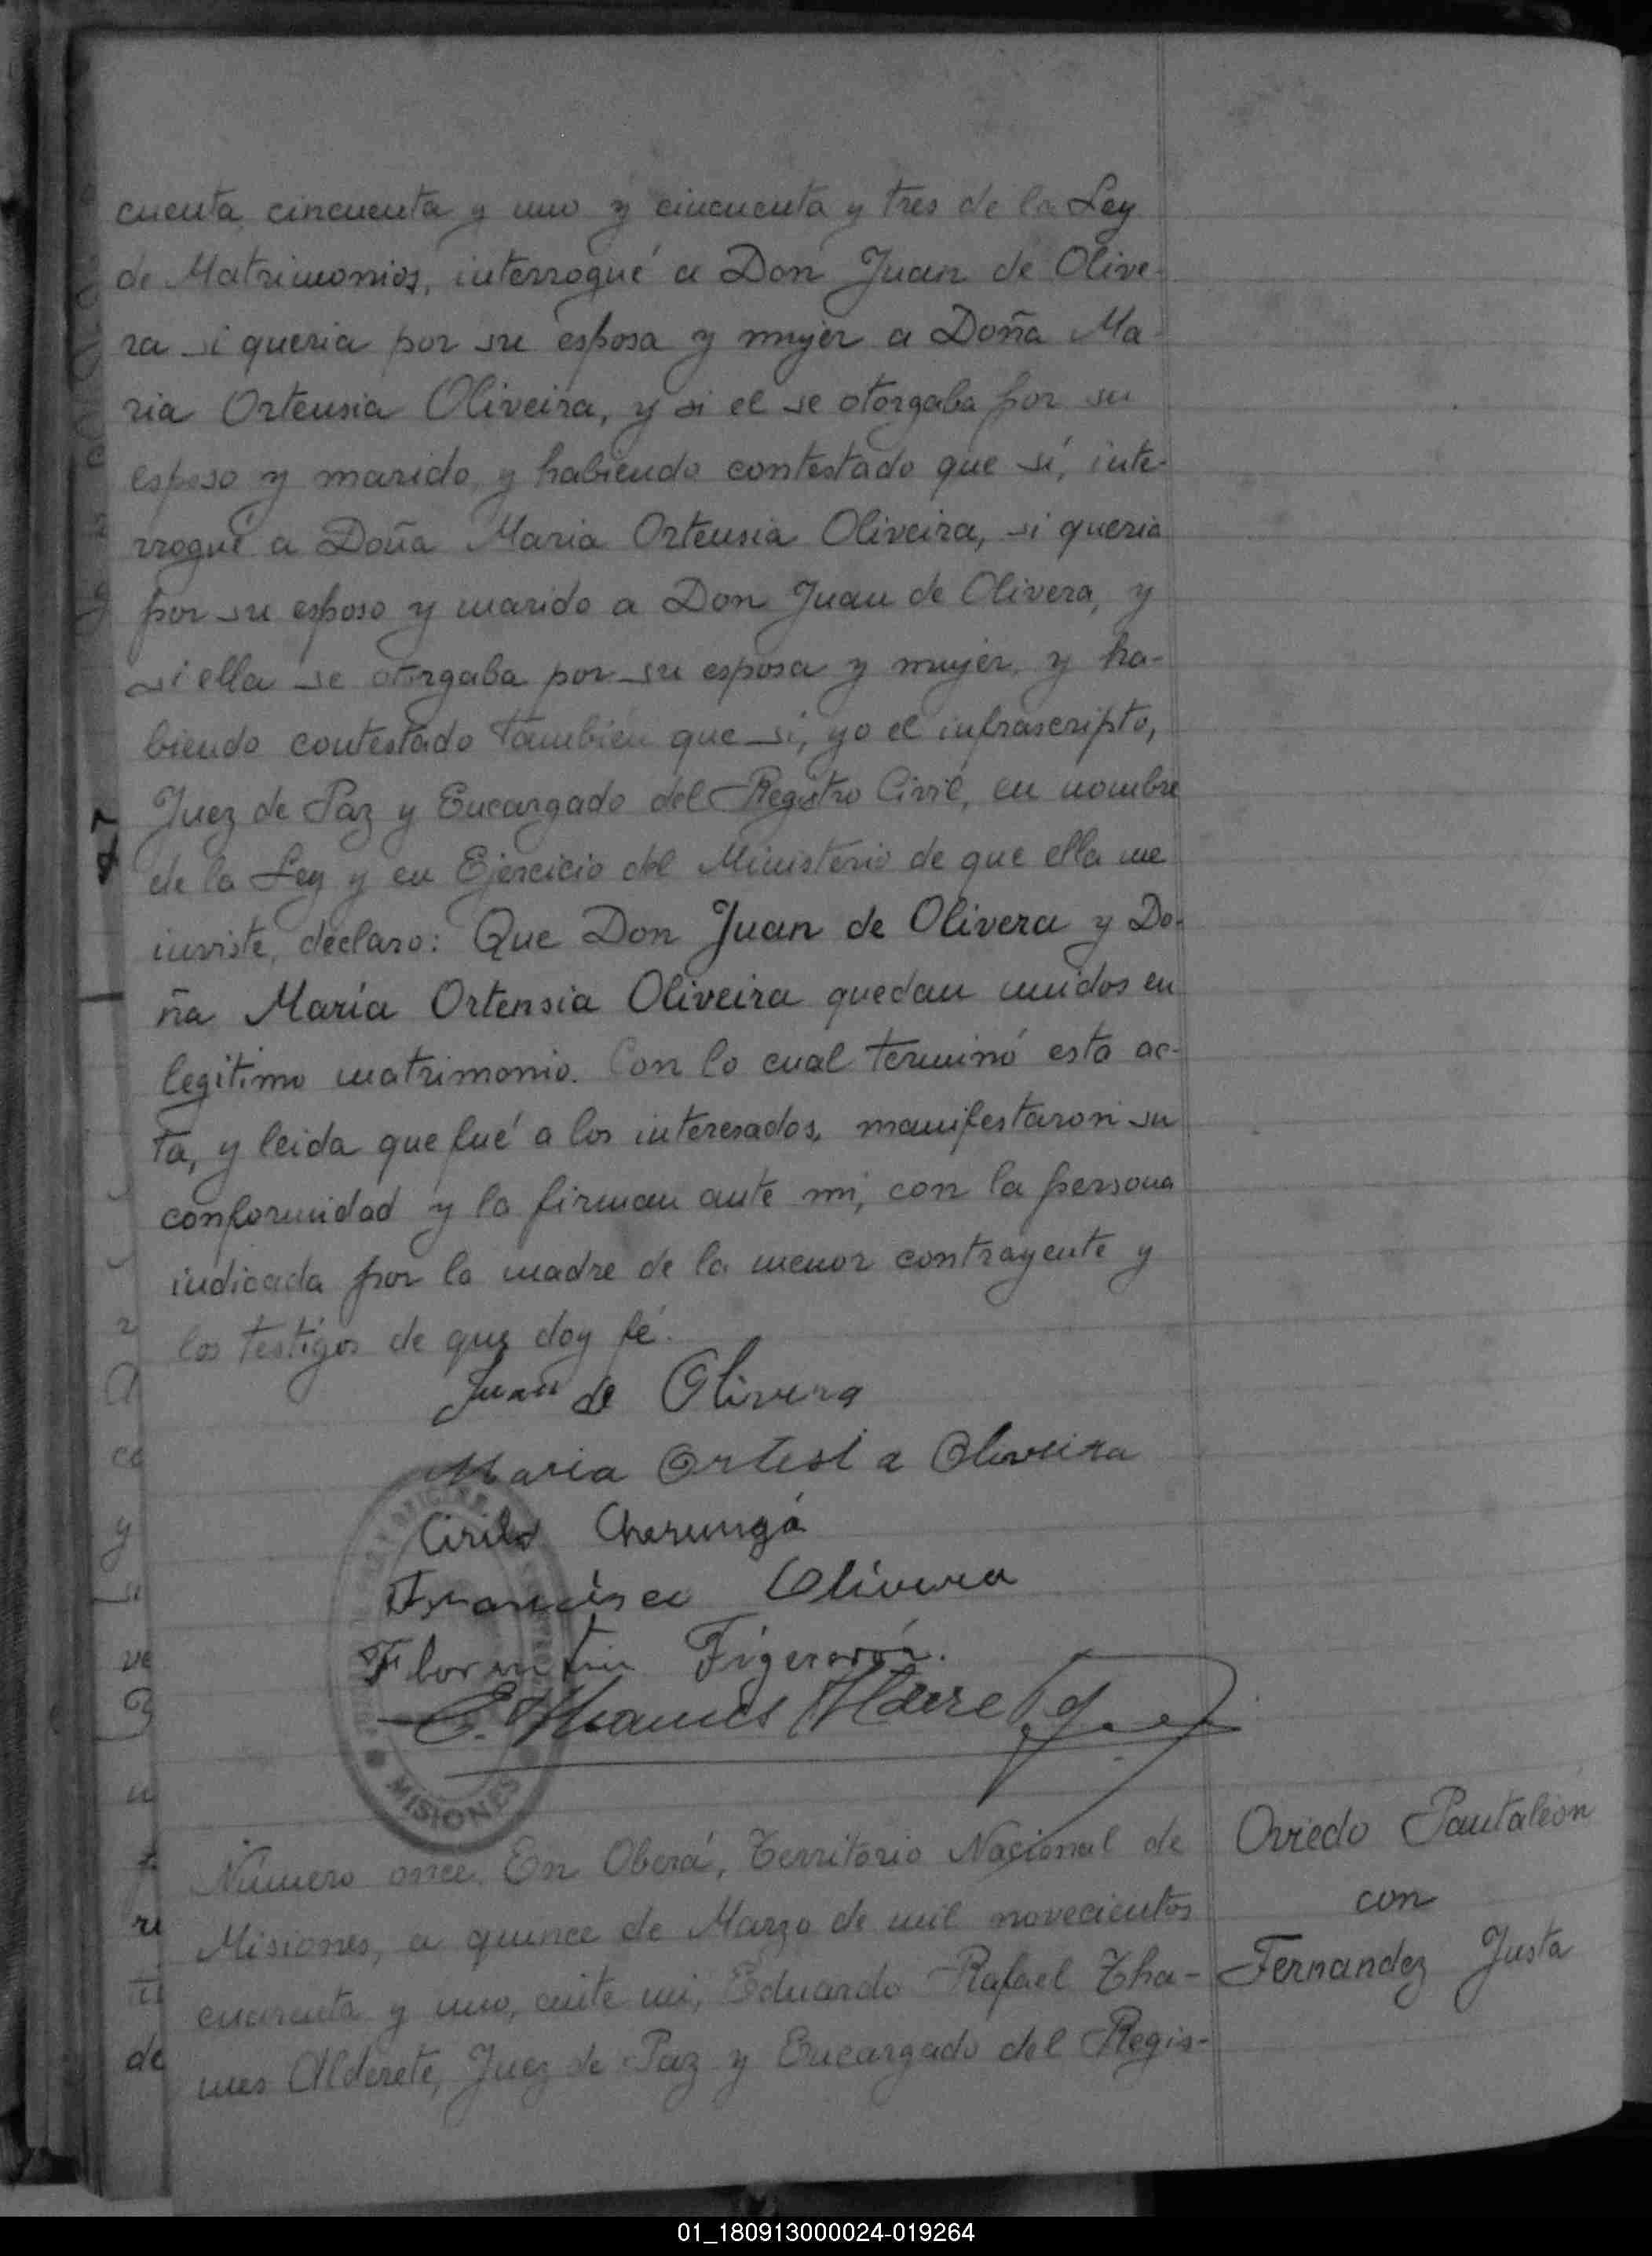 cuenta, cincuenta y uno y cincuenta y tres de la Ley
de Matrimonios, interrogué a Don Juan de Olive-
ra si queria por su esposa y mujer a Doña Ma-
ria Ortensia Oliveira, y si el se otorgaba por su
esposo y marido, y habiendo contestado que sí, inte-
rrogué a Doña Maria Ortensia Oliveira, si queria
por su esposo y marido a Don Juan de Olivera, y
si ella se otorgaba por su esposa y mujer, y ha-
biendo contestado también que si, yo el infrascripto,
Juez de Paz y Encargado del Registro Civil, en nombre
de la Ley y en Ejercicio del Ministerio de que ella me
inviste, declaro: Que Don Juan de Olivera y Do-
ña María Ortensia Oliveira quedan unidos en
legitimo matrimonio. Con lo cual terminó esta ac-
ta, y leida que fué a los interesados, manifestaron su
conformidad y la firman ante mi, con la persona
indicada por la madre de la menor contrayente y
los testigos de que doy fé.
Juan de Olivera
Maria Ortesia Oliveira
Cirilo
Francisco Olivera
Florentin
E. Thames Alderete
MISIONES
Número once. En Oberá, Territorio Nacional de
Misiones, a quince de Marzo de mil novecientos
cuarenta y uno, ante mi, Eduardo Rafael Tha-
mes Alderete, Juez de Paz y Encargado del Regis-
Oviedo Pantaleón
con
Fernandez Justa
01_180913000024-019264